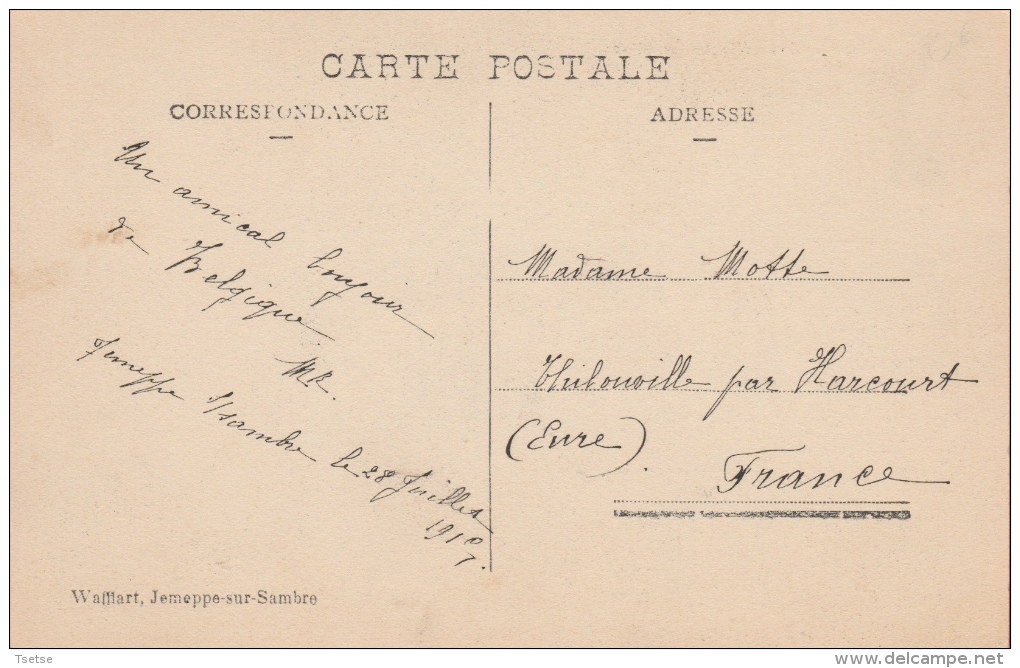 CARTE POSTALE
CORRESPONDANCE
ADRESSE
Un amical bonjour
de Belgique
MR.
Jemeppe s/sambre le 28 Juillet
191
Madame Motte
Thibouville par Harcourt
(Eure).
France
Wafflart, Jemeppe-sur-Sambre
Tsetse
delcampe.net